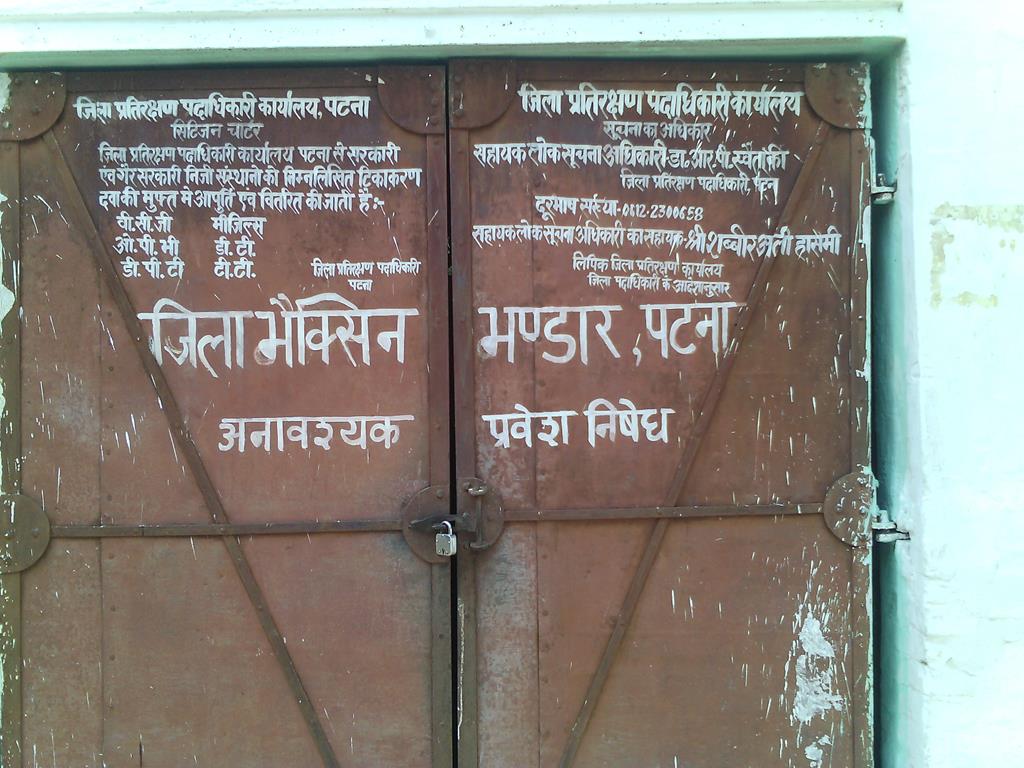 जिला प्रतिरक्षण पदाधिकारी कार्यालय, पटना
सिटिजन चार्टर
जिला प्रतिरक्षण पदाधिकारी कार्यालय पटना से सरकारी
एवं गैर सरकारी निजी संस्थानों को निम्नलिखित टिकाकरण
दवा की मुफ्त मे आपूर्ति एवं वितरित की जाती है:-
वी.सी.जी मीजिल्स
ओ.पी.भी डी.टी.
डी.पी.टी टी.टी.
जिला प्रतिरक्षण पदाधिकारी
पटना
जिला प्रतिरक्षण पदाधिकारी कार्यालय
सूचना का अधिकार
सहायक लोक सूचना अधिकारी-डा. आर.पी.
जिला प्रतिरक्षण पदाधिकारी, पटना
दूरभाष संख्या-0612-2300658
सहायक लोक सूचना अधिकारी का सहायक-श्री शब्बीर अली हासमी
लिपिक जिला प्रतिरक्षण कार्यालय
जिला पदाधिकारी के आदेशानुसार
जिला भैक्सिन भण्डार, पटना
अनावश्यक प्रवेश निषेध